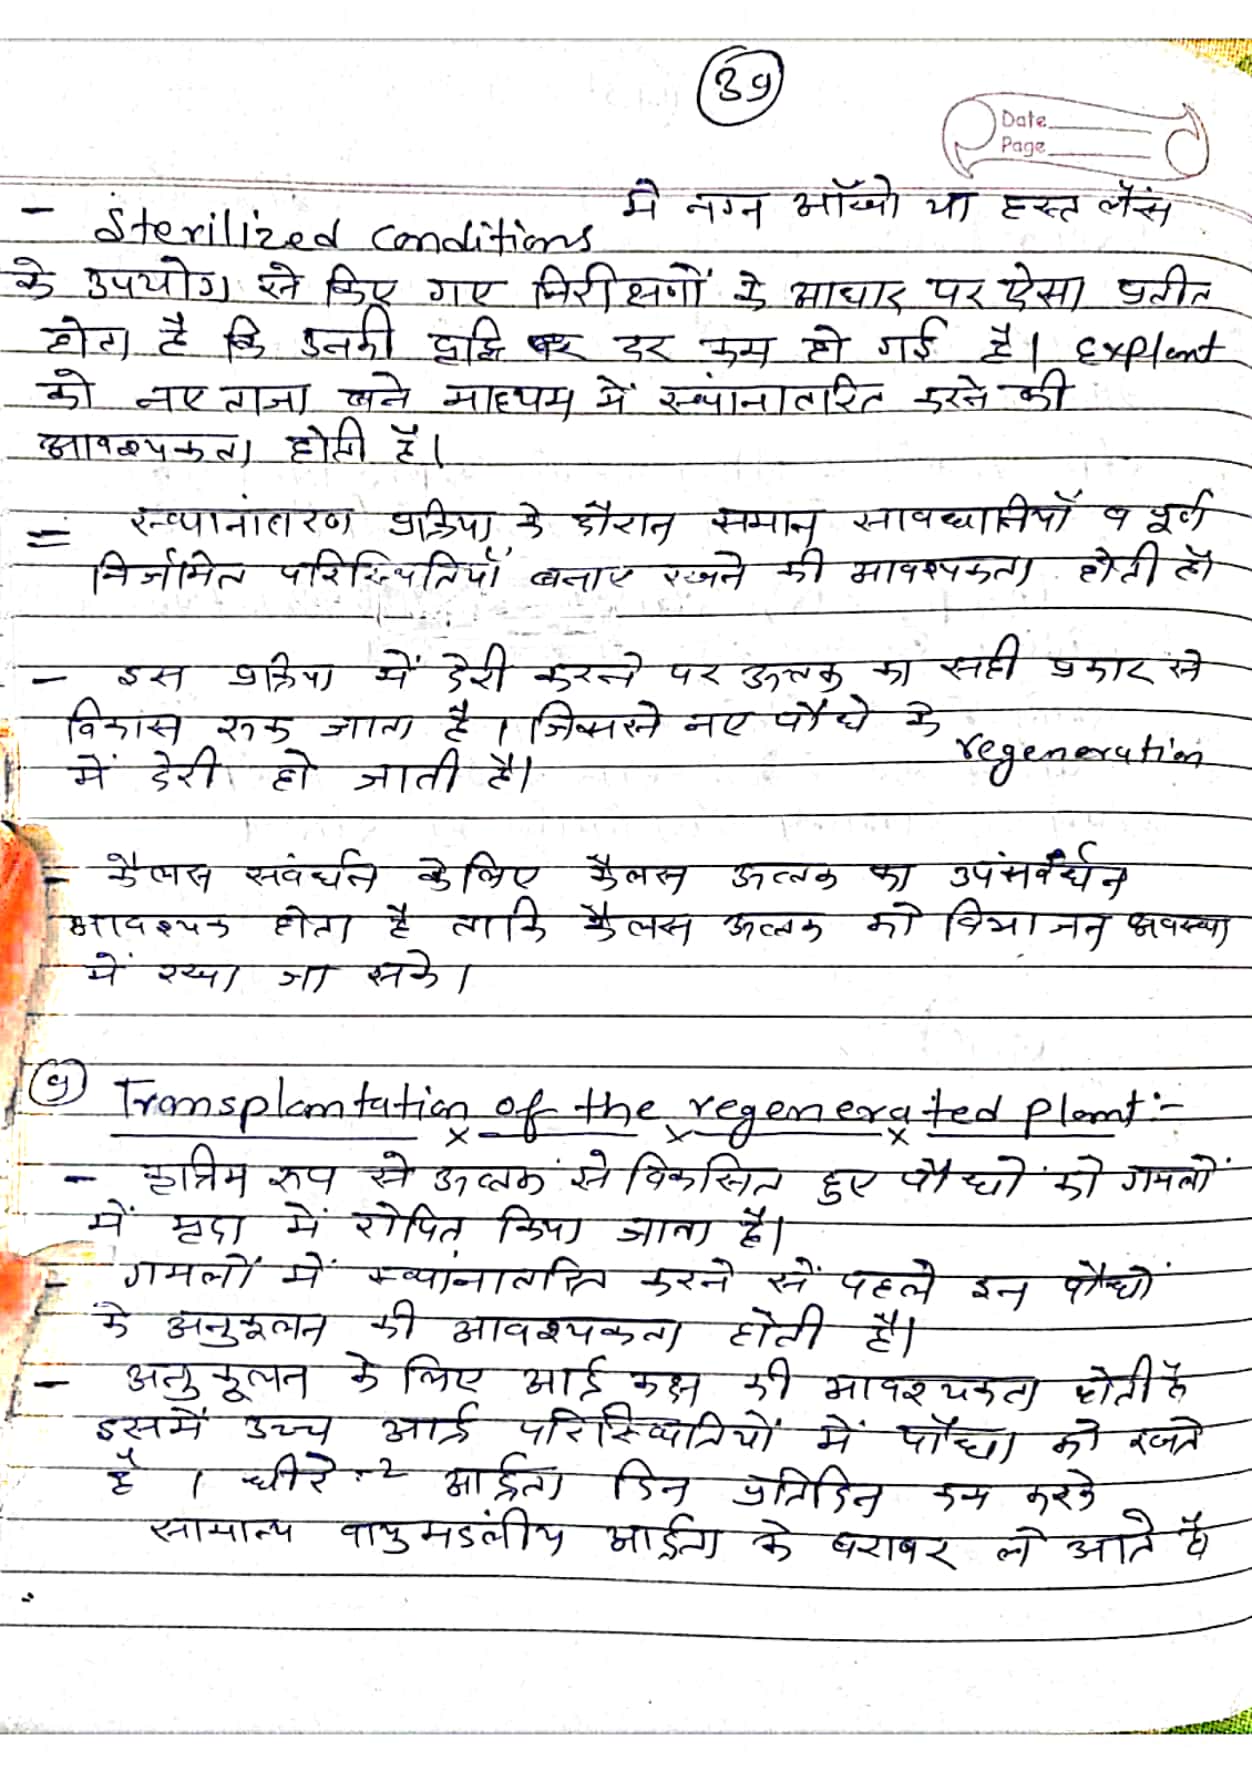 39
Date
Page
- Sterilized conditions में नग्न आँखो या हस्त लैंस
के उपयोग से किए गए निरीक्षणों के आधार पर ऐसा प्रतीत
होता है कि उनकी वृद्धि दर कम हो गई है। Explant
को नए ताजा बने माध्यम में स्थांनातरित करने की
आवश्यकता होती है।
= स्थानांतरण प्रक्रिया के दौरान समान सावधानियाँ व पूर्ण
निर्जर्मित परिस्थितियाँ बनाए रखने की आवश्यकता होती है।
- इस प्रक्रिया में देरी करने पर ऊत्तक का सही प्रकार से
विकास रुक जाता है। जिससे नए पौधे के regeneration
में देरी हो जाती है।
- कैलस संवर्धन के लिए कैलस ऊत्तक का उपसंवर्धन
आवश्यक होता है ताकि कैलस ऊत्तक को विभाजन अवस्था
में रखा जा सके।
9) Transplantation of the regenerated plant:-
- कृत्रिम रूप से ऊत्तक से विकसित हुए पौधों को गमलों
में मृदा में रोपित किया जाता है।
- गमलों में स्थांनातरित करने सें पहले इन पौधों
के अनुकूलन की आवश्यकता होती है।
- अनुकूलन के लिए आर्द्र कक्ष की आवश्यकता होती है
इसमें उच्च आर्द्र परिस्थितियों में पौधा को रखते
है । धीरे-2 आर्द्रता दिन प्रतिदिन कम करके
सामान्य वायुमडंलीय आर्द्रता के बराबर ले आते है